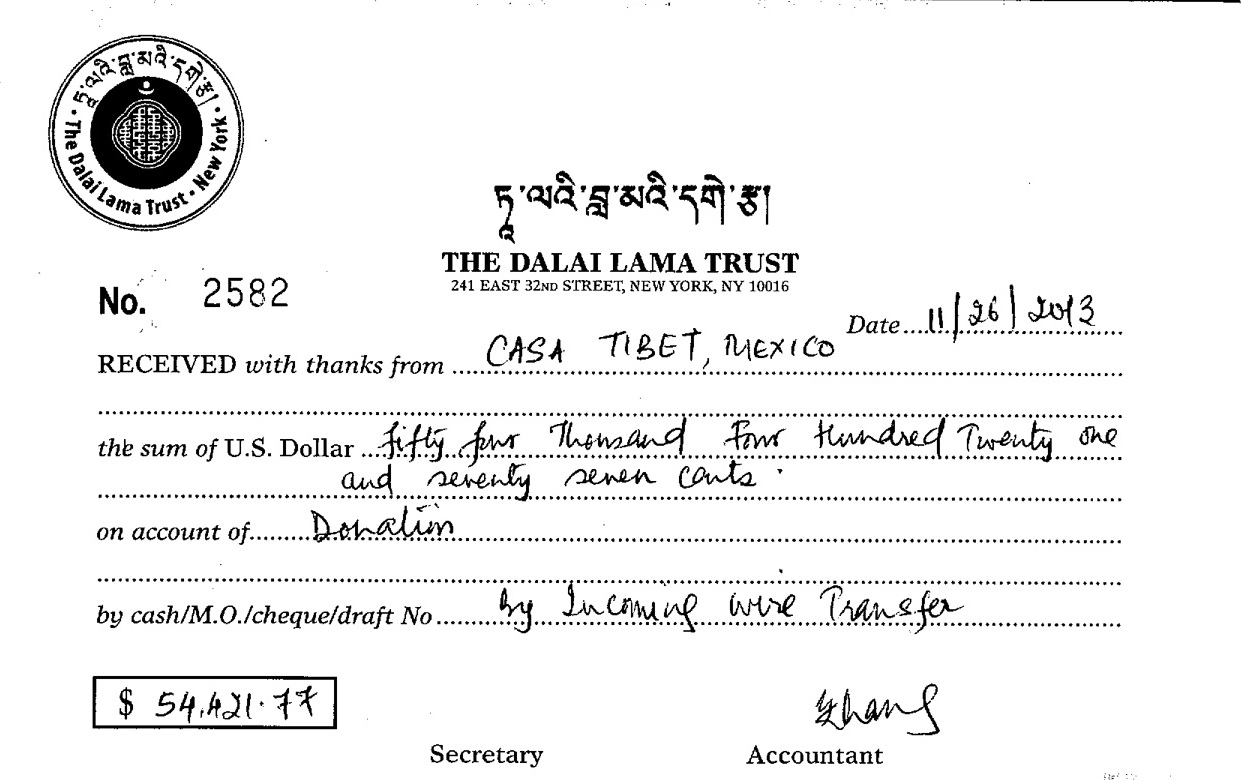 ཏཱ་ལའི་བླ་མའི་དགེ་རྩ།
• The Dalai Lama Trust • New York •
ཏཱ་ལའི་བླ་མའི་དགེ་རྩ།
THE DALAI LAMA TRUST
241 EAST 32ND STREET, NEW YORK, NY 10016
No. 2582
Date 11/26/2013
RECEIVED with thanks from CASA TIBET, MEXICO
the sum of U.S. Dollar fifty four Thousand Four Hundred Twenty one
and seventy seven cents.
on account of Donation
by cash/M.O./cheque/draft No by Incoming wire Transfer
$ 54,421.77
Secretary Accountant